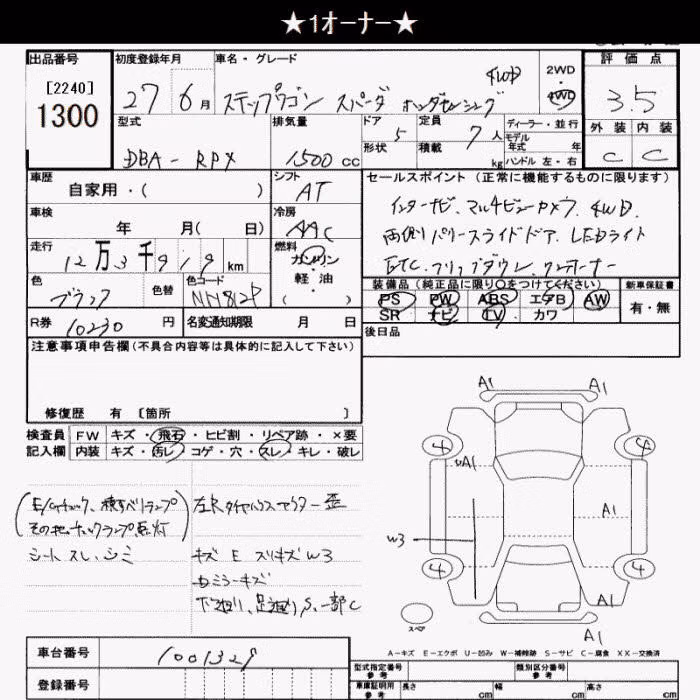 ★1オーナー★
出品番号
[2240]
1300
初度登録年月
27 6月
車名・グレード
ステップワゴン スパーダ ホンダセンシング
4WD
2WD
・
4WD
評価点
3.5
外装 内装
C C
型式
DBA-RPX
排気量
1500 cc
ドア 5
形状
定員 7人
積載 kg
ディーラー・並行
モデル年式 年
ハンドル 左・右
車歴
自家用・( )
シフト
AT
車検
年 月( 日)
冷房
AAC
走行
12万3千919km
燃料
ガソリン
軽・油
( )
色
ブラック
色替
色コード
R券 10230 円
名変通知期限 月 日
セールスポイント (正常に機能するものに限ります)
インターナビ、マルチビューカメラ、4WD、
両側パワースライドドア、LEDライト
ETC、フリップダウン、ワンオーナー
装備品(純正品に限り○をつけてください)
PS PW ABS エアB AW
SR ナビ TV カワ
新車保証書
有・無
後日品
注意事項申告欄(不具合内容等は具体的に記入して下さい)
修復歴 有 〔箇所 〕
検査員
記入欄
FW キズ・飛石・ヒビ割・リペア跡・×要
内装 キズ・汚レ・コゲ・穴・スレ・キレ・破レ
(E/Gチェック、横すべりランプ
その他チェックランプ点灯)
シートスレ、シミ
キズ E スリキズ W3
ミラーキズ
下廻り、足廻りS、一部C
A1 A1
4 4
A1
A1
W3
4 4
A1
A1
スペア
A-キズ E-エクボ U-凹み W-補修跡 S-サビ C-腐食 XX-交換済
車台番号
1001329
登録番号
型式指定番号
参考
類別区分番号
参考
車庫証明用
参考
長さ cm
幅 cm
高さ cm